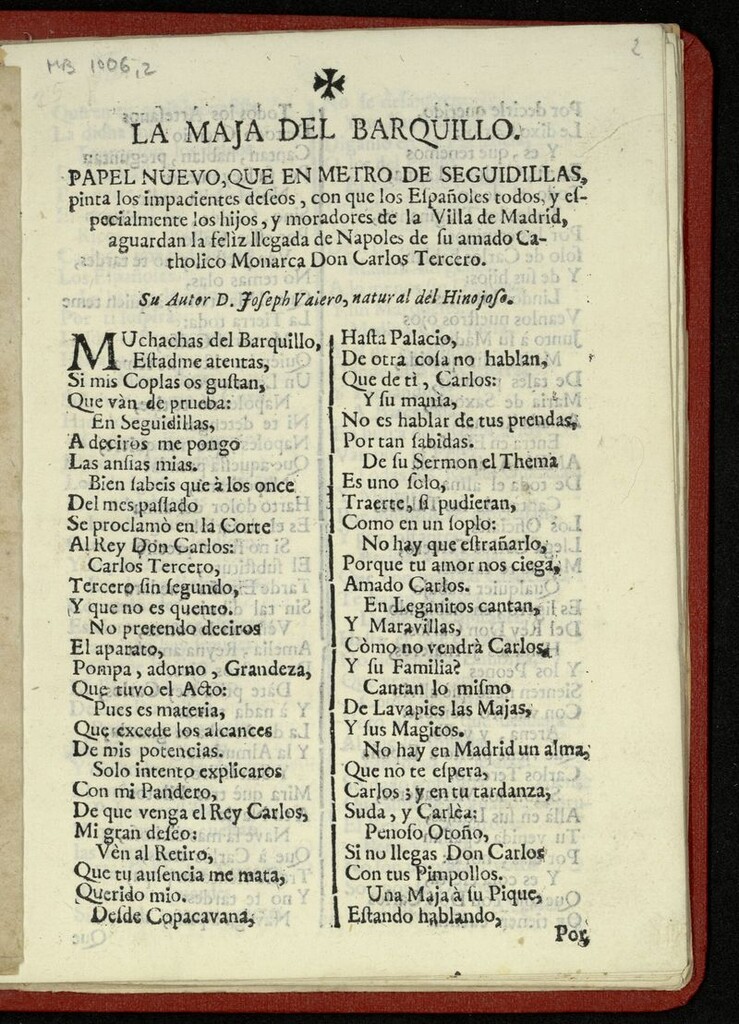 MB 1006,2
2
LA MAJA DEL BARQUILLO.
PAPEL NUEVO, QUE EN METRO DE SEGUIDILLAS,
pinta los impacientes deseos, con que los Españoles todos, y es-
pecialmente los hijos, y moradores de la Villa de Madrid,
aguardan la feliz llegada de Napoles de su amado Ca-
tholico Monarca Don Carlos Tercero.
Su Autor D. Joseph Valero, natural del Hinojoso.
MUchachas del Barquillo,
Estadme atentas,
Si mis Coplas os gustan,
Que vàn de prueba:
En Seguidillas,
A deciros me pongo
Las ansias mias.
Bien sabeis que à los once
Del mes passado
Se proclamò en la Corte
Al Rey Don Carlos:
Carlos Tercero,
Tercero sin segundo,
Y que no es quento.
No pretendo deciros
El aparato,
Pompa, adorno, Grandeza,
Que tuvo el Acto:
Pues es materia,
Que excede los alcances
De mis potencias.
Solo intento explicaros
Con mi Pandero,
De que venga el Rey Carlos,
Mi gran deseo:
Vèn al Retiro,
Que tu ausencia me mata,
Querido mio.
Desde Copacavana,
Hasta Palacio,
De otra cosa no hablan,
Que de tì, Carlos:
Y su mania,
No es hablar de tus prendas,
Por tan sabidas.
De su Sermon el Thema
Es uno solo,
Traerte, si pudieran,
Como en un soplo:
No hay que estrañarlo,
Porque tu amor nos ciega,
Amado Carlos.
En Leganitos cantan,
Y Maravillas,
Còmo no vendrà Carlos,
Y su Familia?
Cantan lo mismo
De Lavapies las Majas,
Y sus Magitos.
No hay en Madrid un alma,
Que no te espera,
Carlos; y en tu tardanza,
Suda, y Carlèa:
Penoso Otoño,
Si no llegas Don Carlos
Con tus Pimpollos.
Una Maja à su Pique,
Estando hablando,
Por